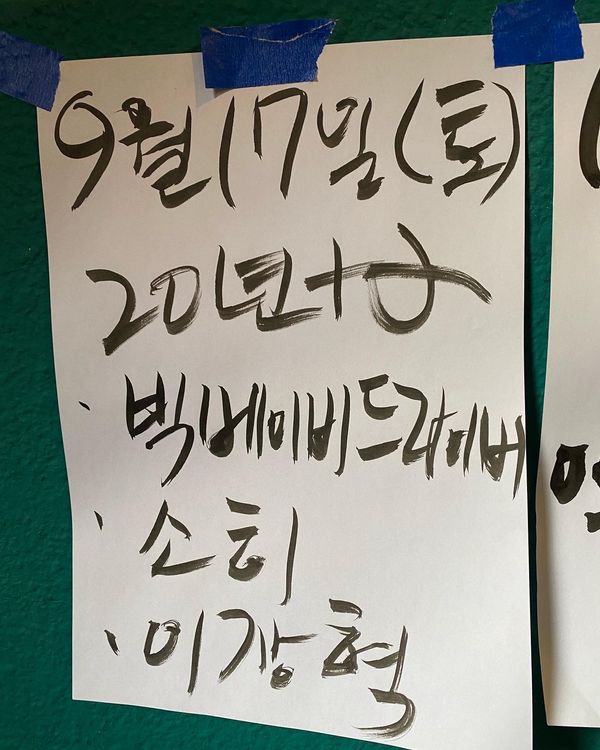 9월 17일 (토)
20년+α
· 빅베이비드라이버
· 소히
· 이장혁